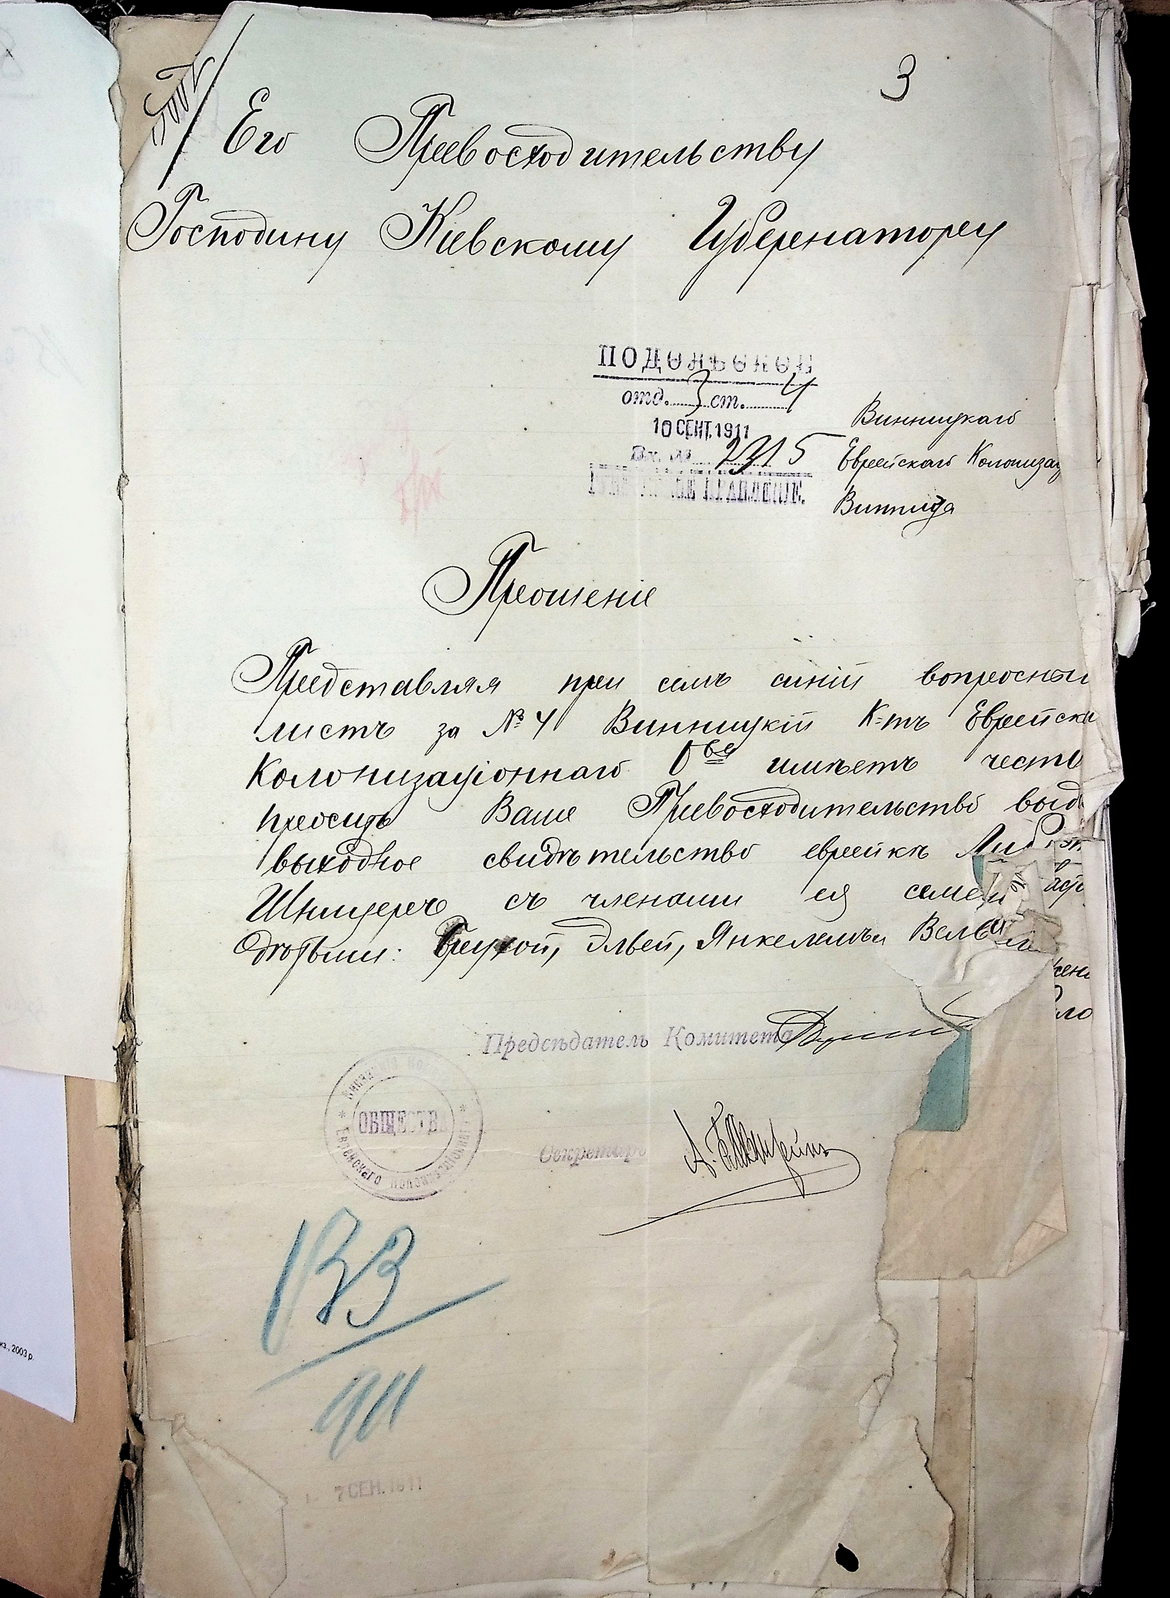 3
Его Превосходительству
Господину Кіевскому Губернатору
ПОДОЛЬСКОЕ
отд. 3 ст. 4
10 СЕНТ. 1911
Вх. № 2315
ГУБЕРНСКОЕ ПРАВЛЕНІЕ.
Винницкаго
Еврейскаго Колонизац
Винница
Прошеніе
Представляя при семъ синій вопросный
листъ за № 4 Винницкій К-тъ Еврейска
Колонизаціоннаго О-ва имѣетъ честь
просить Ваше Превосходительство выд
выходное свидѣтельство еврейкѣ
Шницеръ съ членами ея семьи
дѣтьми: Брухой, Эльей, Янкелемъ и
Предсѣдатель Комитета
ОБЩЕСТВА
ЕВРЕЙСКАГО КОЛОНИЗАЦІОННАГО
Секретарь
133
911
7 СЕН. 1911
из., 2003 р.